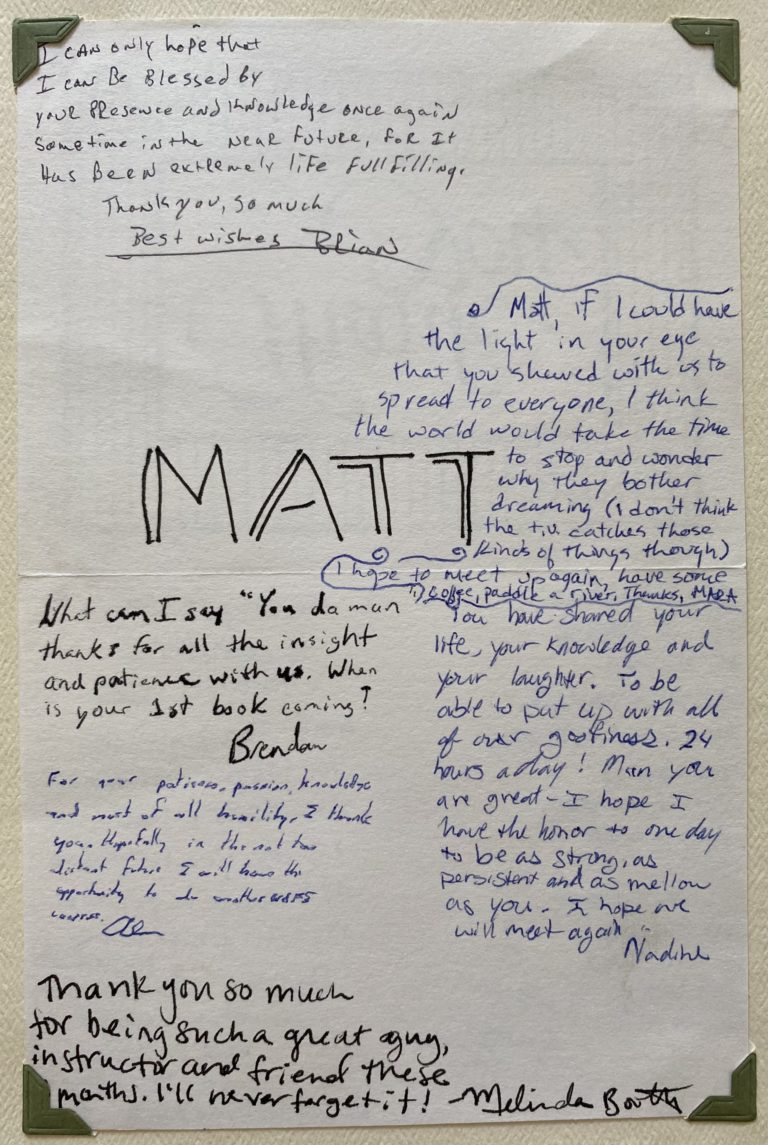 I can only hope that
I can Be Blessed by
your Presence and knowledge once again
Sometime in the near future, for It
Has Been extremely life fullfilling.
Thank you, so much
Best wishes Brian
Matt, if I could have
the light in your eye
that you shared with us to
spread to everyone, I think
the world would take the time
to stop and wonder
why they bother
dreaming (I don't think
the t.v. catches those
kinds of things though)
I hope to meet up again, have some
coffee, paddle a river, Thanks, MARA
MATT
What can I say "You da man
thanks for all the insight
and patience with us. When
is your 1st book coming?
Brendan
For your patience, passion, knowledge
and most of all humility, I thank
you. Hopefully in the not too
distant future I will have the
opportunity to do another
course.
You have shared your
life, your knowledge and
your laughter. To be
able to put up with all
of our goofiness. 24
hours a day! Man you
are great - I hope I
have the honor to one day
to be as strong, as
persistent and as mellow
as you - I hope we
will meet again
Nadine
Thank you so much
for being such a great guy,
instructor and friend these
months. I'll never forget it! -Melinda